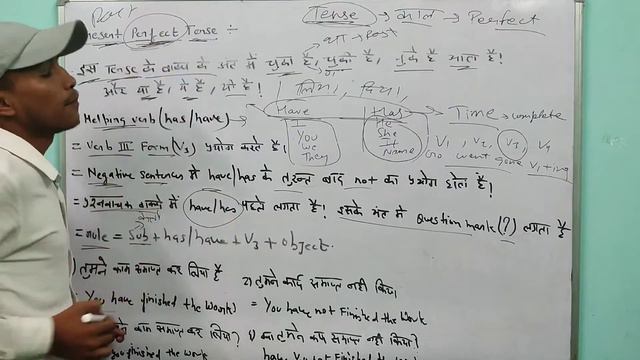 Tense → काल → Perfect
Present Perfect Tense ÷
इस Tense के वाक्य के अंत में चुका है, चुकी है, चुके है आता है!
और या है, ये है, यी है! लिया, दिया,
Helping verb (has/have) → Have Has → Time → complete
You We They
He She It Name
V1, V2, V3, V4
Go went gone V1+ing
= Verb III Form (V3) प्रयोग करते है!
= Negative Sentences में have/has के तुरन्त बाद not का प्रयोग होता है!
= प्रश्नवाचक वाक्यो में have/has पहले लगता है! इसके अंत में Question mark (?) लगता है
= Rule = Sub + has/have + V3 + object.
) तुमने काम समाप्त कर लिया है
2) तुमने कार्य समाप्त नही किया
You have finished the work!
= You have not Finished the work
काम समाप्त कर लिया?
you finished the work
have you not Finished the